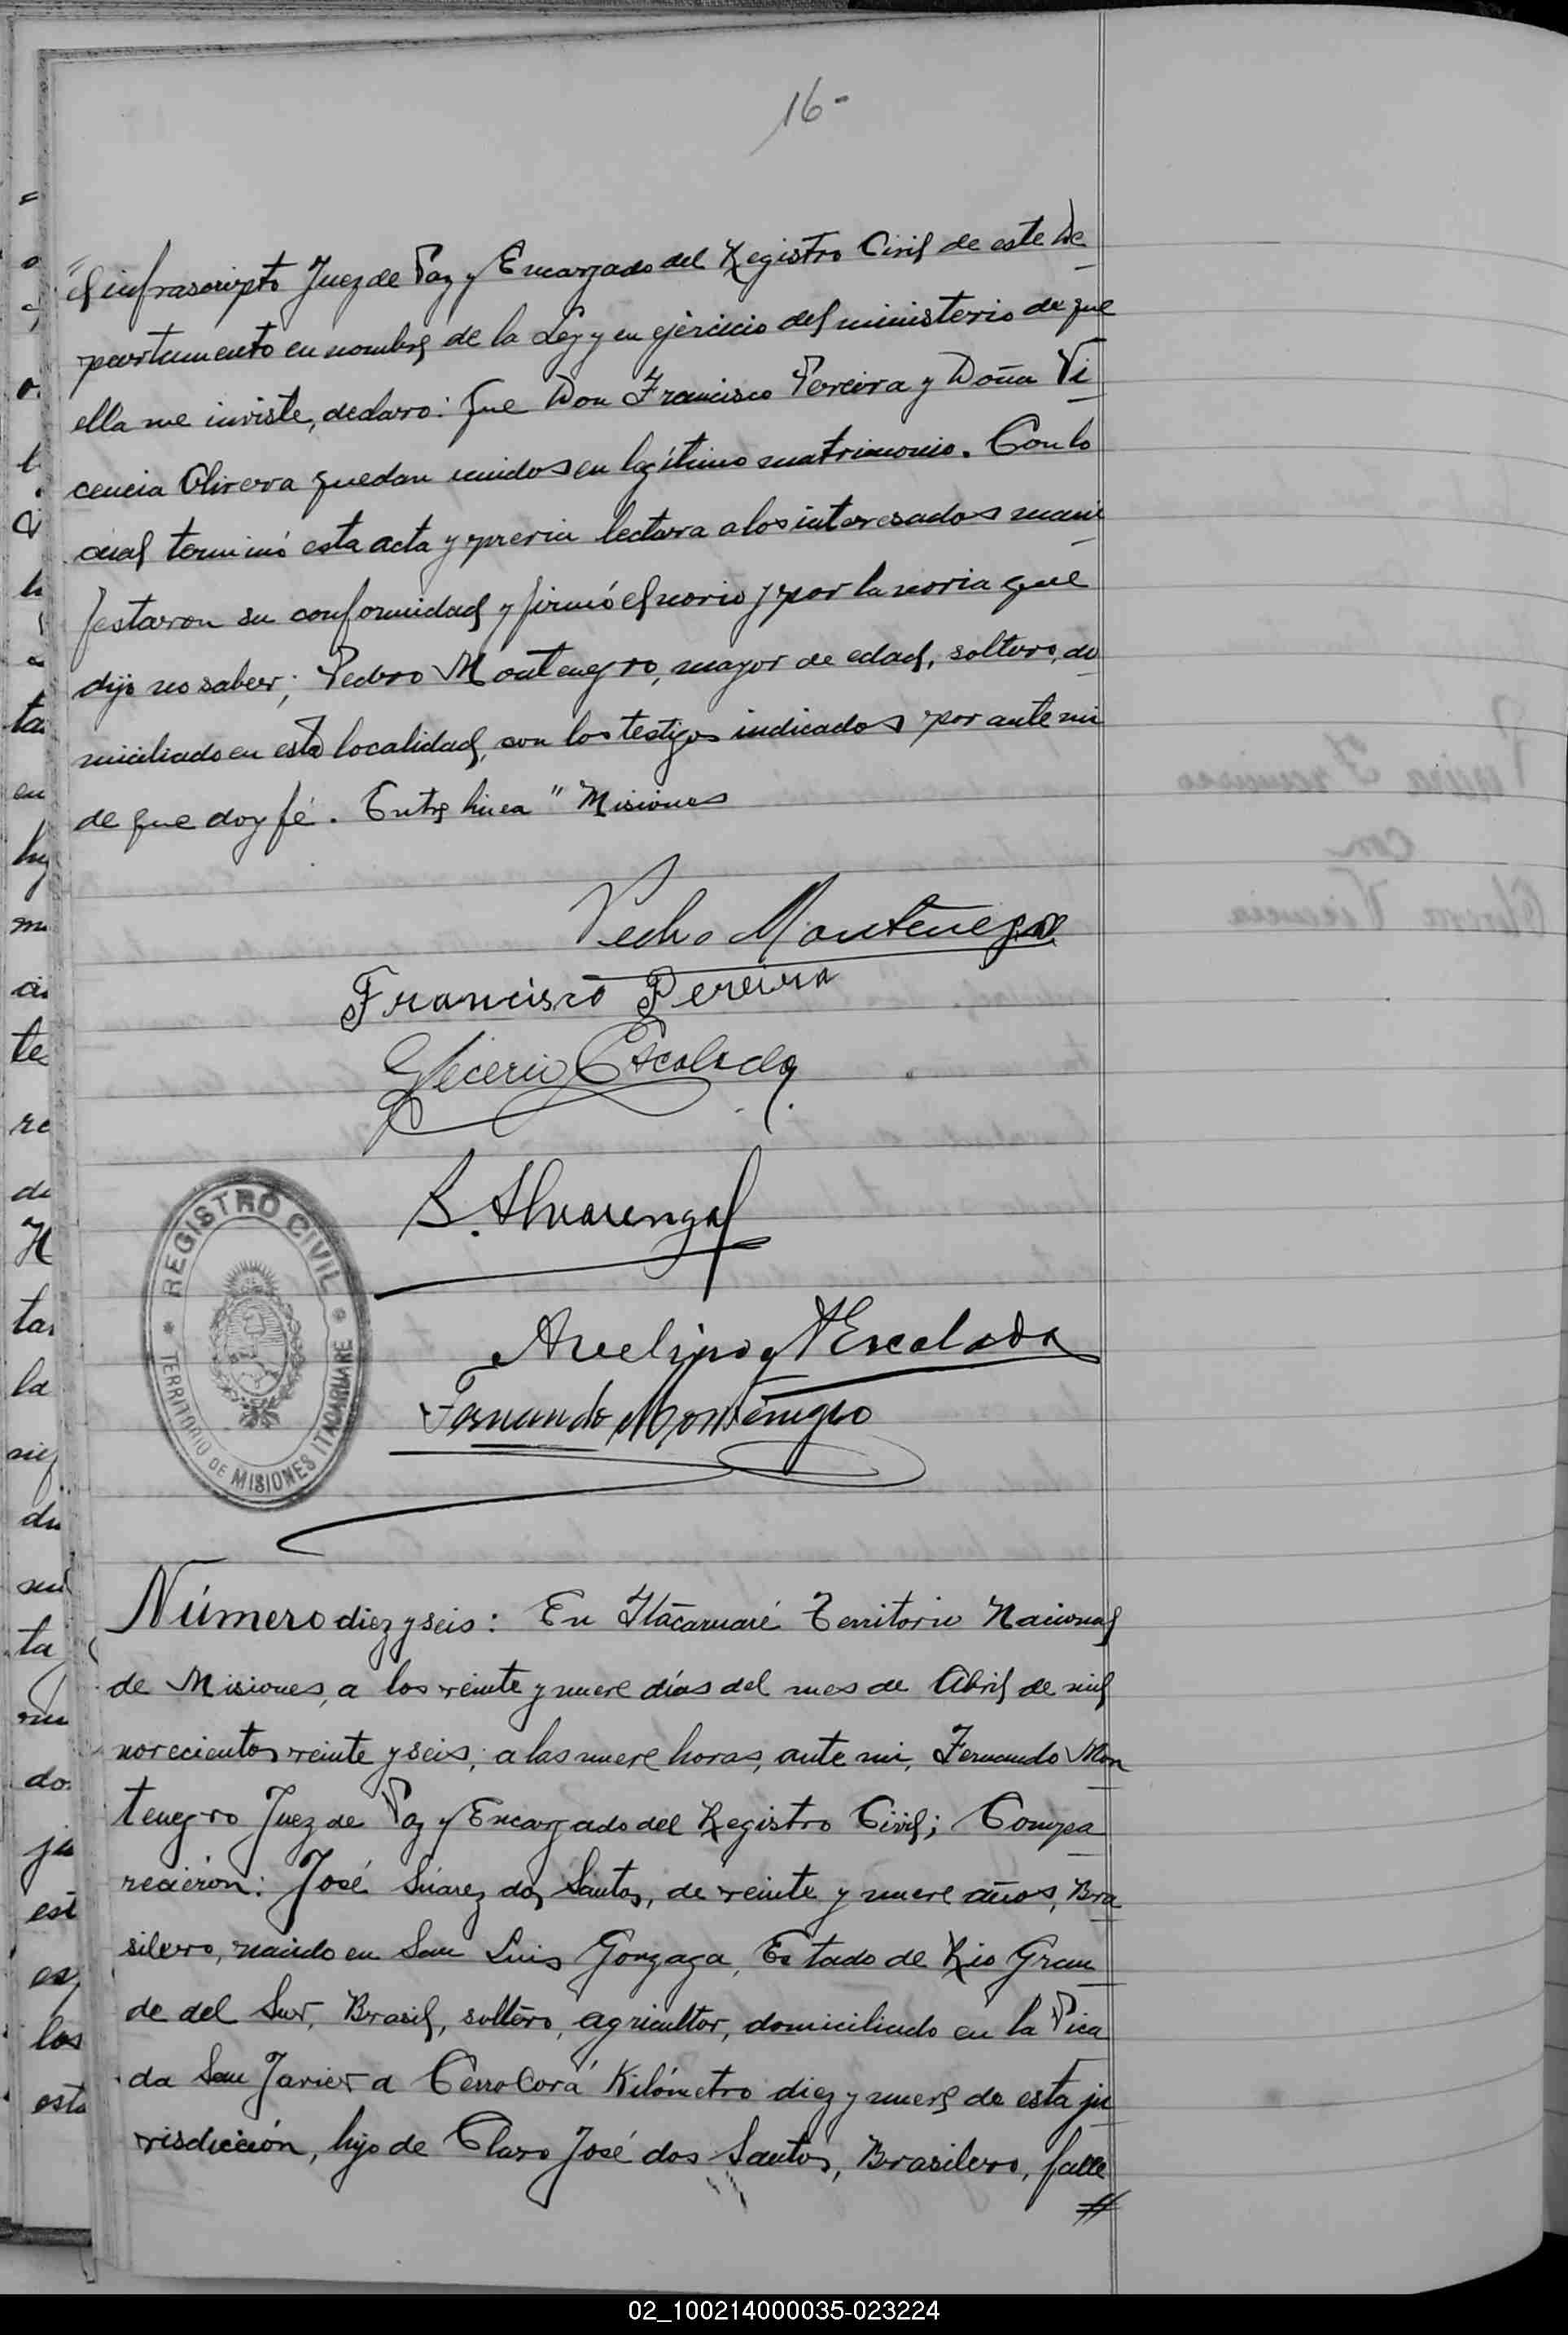 16-
"el infrascripto Juez de Paz y Encargado del Registro Civil de este De
partamento en nombre de la Ley y en ejercicio del ministerio de que
ella me inviste, declaro: que Don Francisco Pereira y Doña Vi
cencia Olivera quedan unidos en legítimo matrimonio. Con lo
cual terminó esta acta y previa lectura a los interesados mani
festaron su conformidad y firmó el novio y por la novia que
dijo no saber; Pedro Montenegro, mayor de edad, soltero, do
miciliado en esta localidad, con los testigos indicados por ante mi
de que doy fé. Entre linea "Misiones
Pedro Montenegro
Francisco Pereira
Glicerio Escalada
B. Alvarenga
Avelino Escalada
Fernando Montenegro
REGISTRO CIVIL
TERRITORIO DE MISIONES ITACARUARE
Número diez y seis: En Itacaruaré Territorio Nacional
de Misiones, a los veinte y nueve días del mes de Abril de mil
novecientos veinte y seis; a las nueve horas, ante mi, Fernando Mon
tenegro Juez de Paz y Encargado del Registro Civil; Compa
recieron: José Súarez dos Santos, de veinte y nueve años, Bra
silero, nacido en San Luis Gonzaga, Estado de Rio Gran
de del Sur, Brasil, soltero, agricultor, domiciliado en la Pica
da San Javier a Cerro Corá Kilómetro diez y nueve de esta ju
risdicción, hijo de Claro José dos Santos, Brasilero, falle
02_100214000035-023224